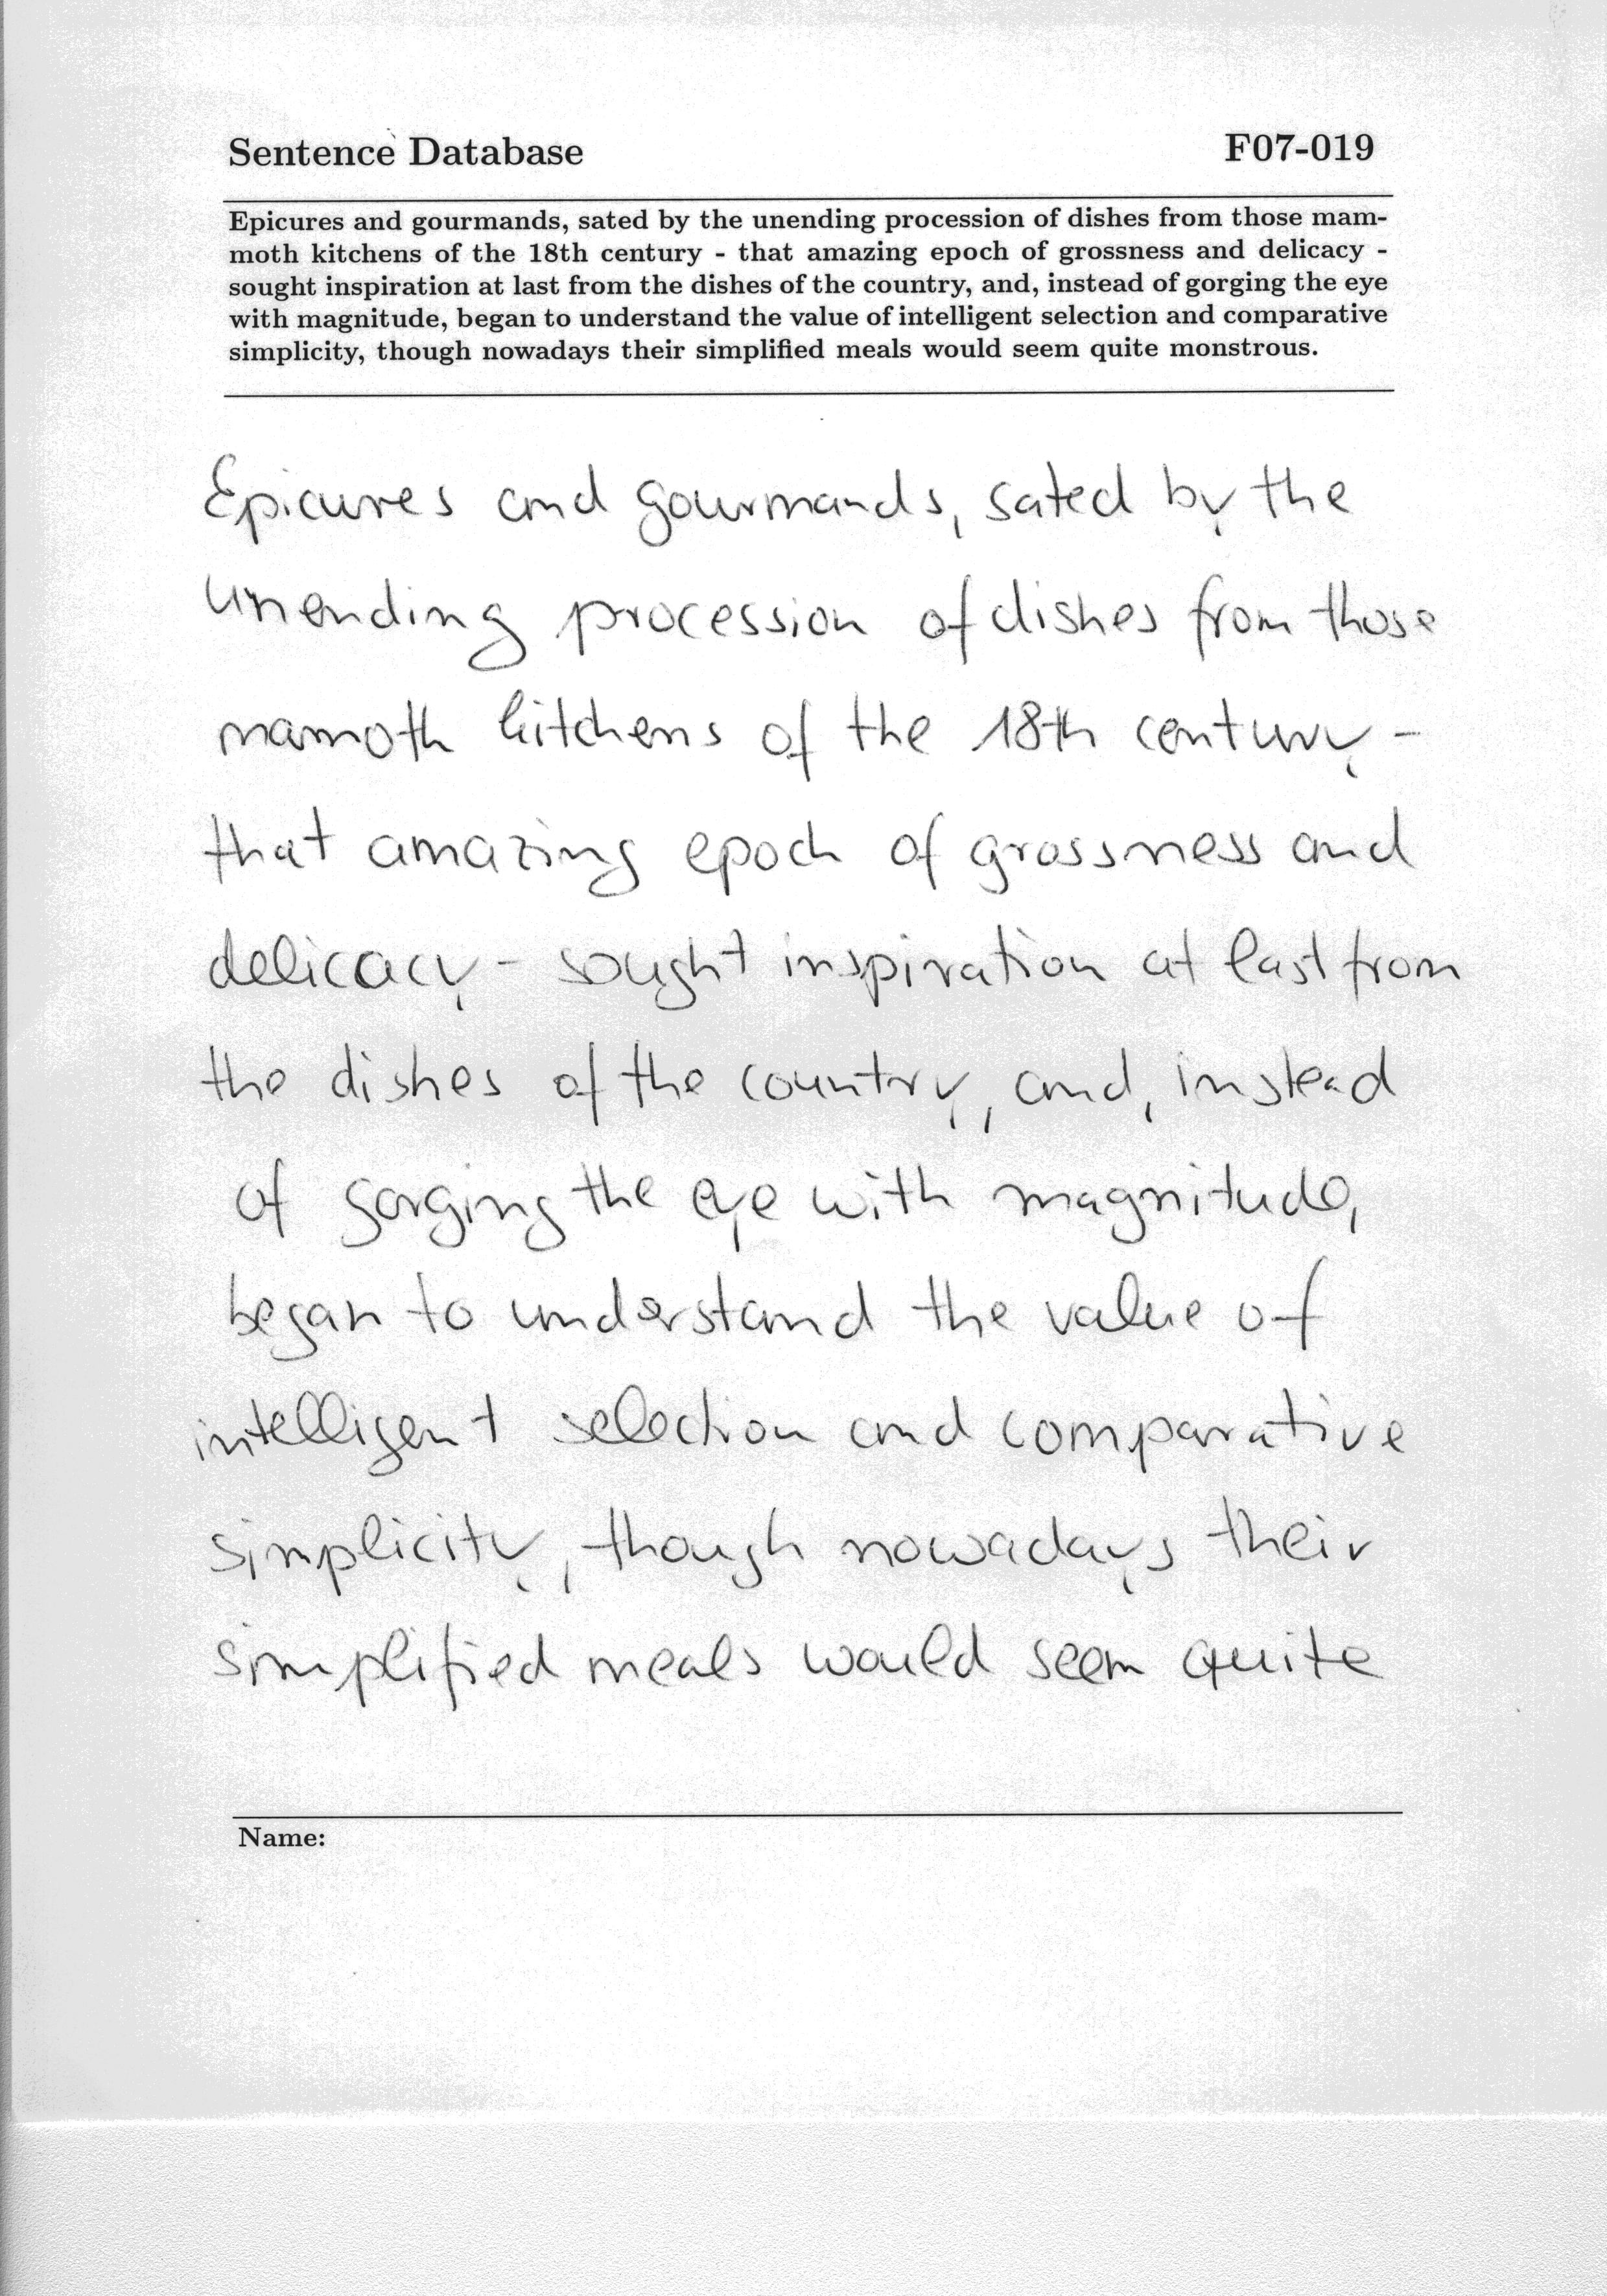 Sentence Database F07-019
Epicures and gourmands, sated by the unending procession of dishes from those mam-
moth kitchens of the 18th century - that amazing epoch of grossness and delicacy -
sought inspiration at last from the dishes of the country, and, instead of gorging the eye
with magnitude, began to understand the value of intelligent selection and comparative
simplicity, though nowadays their simplified meals would seem quite monstrous.
Epicures and gourmands, sated by the
unending procession of dishes from those
mamoth kitchens of the 18th century -
that amazing epoch of grossness and
delicacy - sought inspiration at last from
the dishes of the country, and, instead
of gorging the eye with magnitude,
began to understand the value of
intelligent selection and comparative
simplicity, though nowadays their
simplified meals would seem quite
Name: